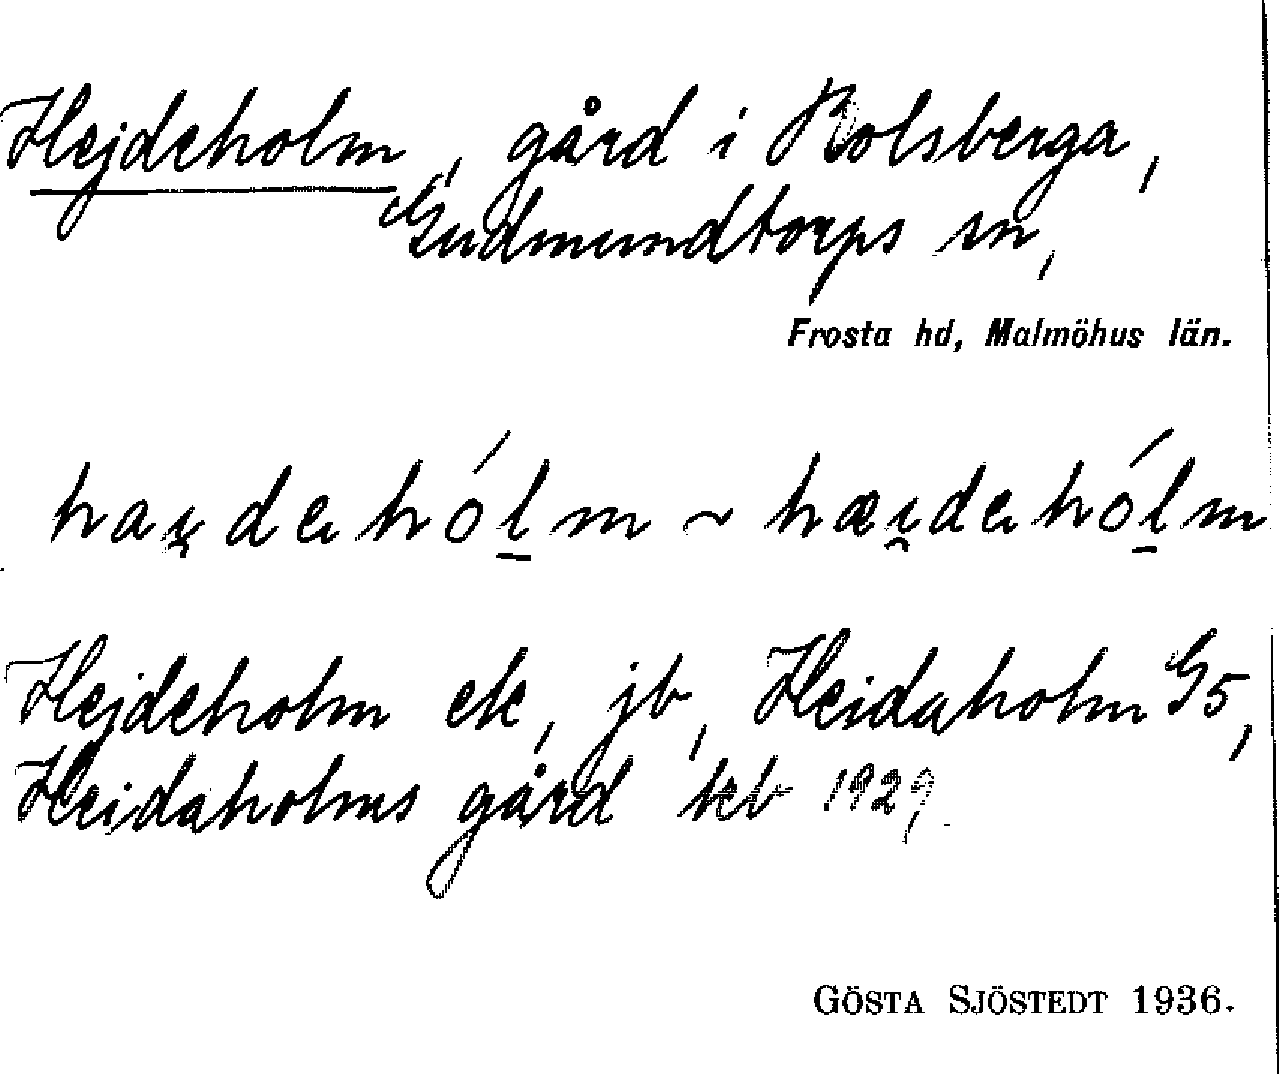 Hejdeholm, gård i Rolsberga,
Gudmundtorps sn,
Frosta hd, Malmöhus län.
haɪ̯dəhólm ~ hæɪ̯dəhólm
Hejdeholm ek, jb, Heidaholm G5,
Heidaholms gård tcb 1929.
GÖSTA SJÖSTEDT 1936.